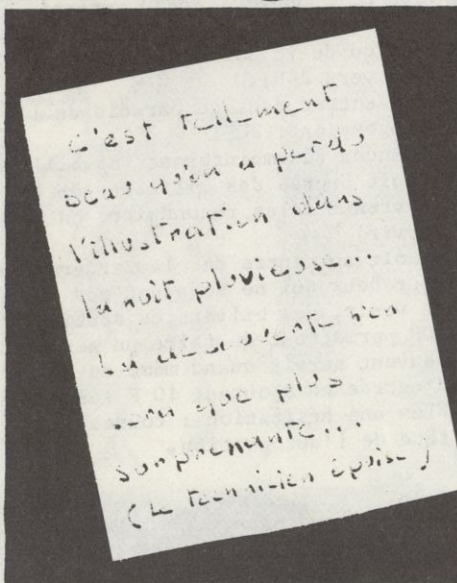 C'est tellement
beau qu'on a perdu
l'illustration dans
la nuit pluvieuse...
La découverte n'en
sera que plus
surprenante...
(Le technicien épuisé)